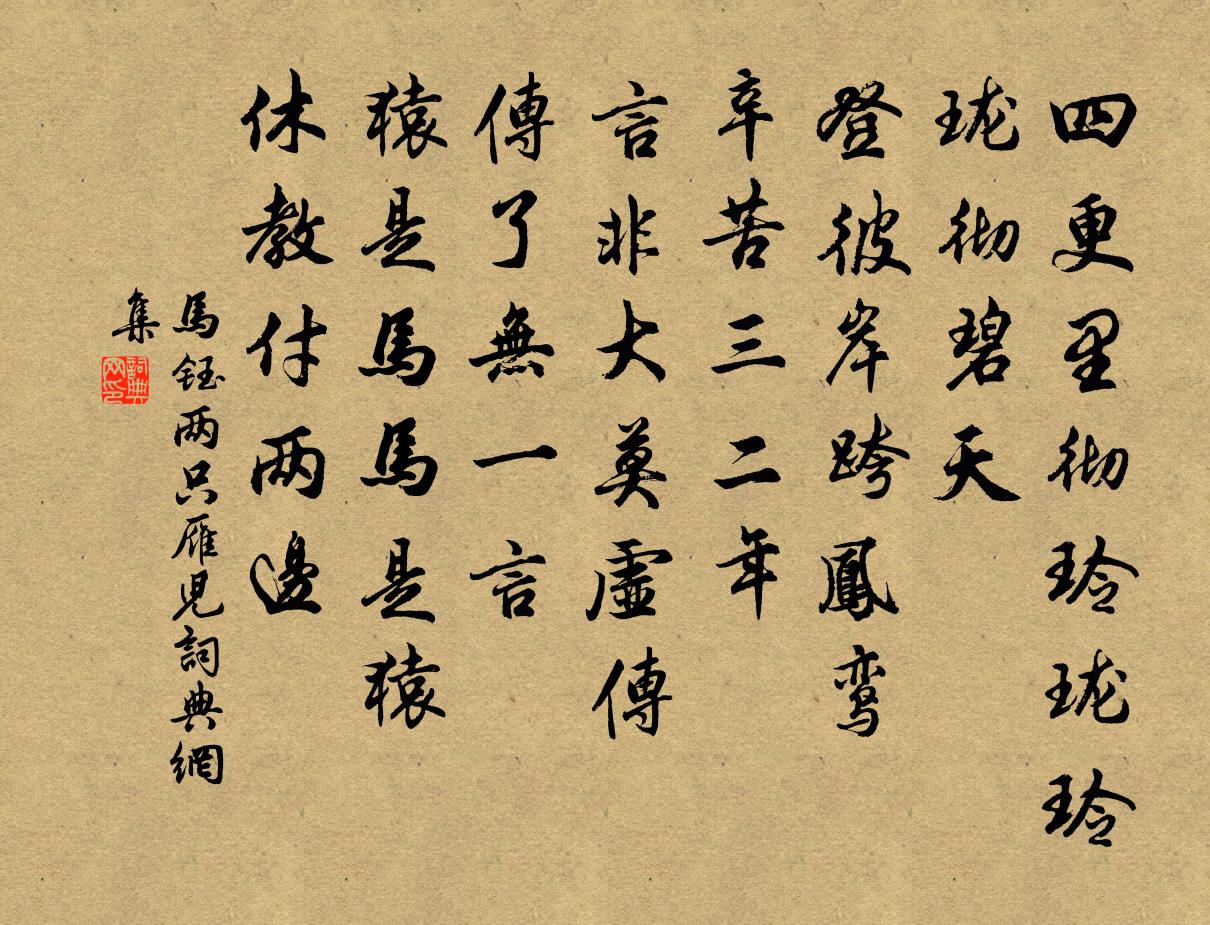 四更里彻玲珑玲
珑彻碧天
登彼岸跨鳳鸾
辛苦三二年
言非大莫虛傳
傳了無一言
猿是馬馬是猿
休教付两邊
馬鈺两只雁児詞典網
集
詞典
网印